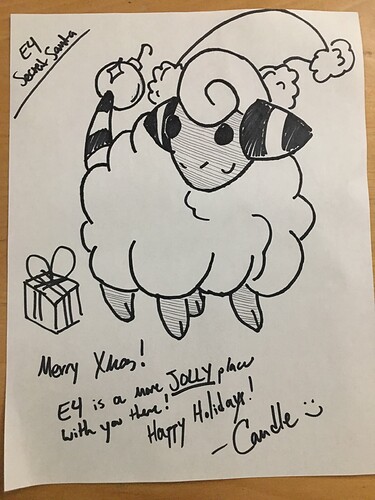 E4
Secret Santa
Merry Xmas!
E4 is a more JOLLY place
with you there!
Happy Holidays!
- Candle :)